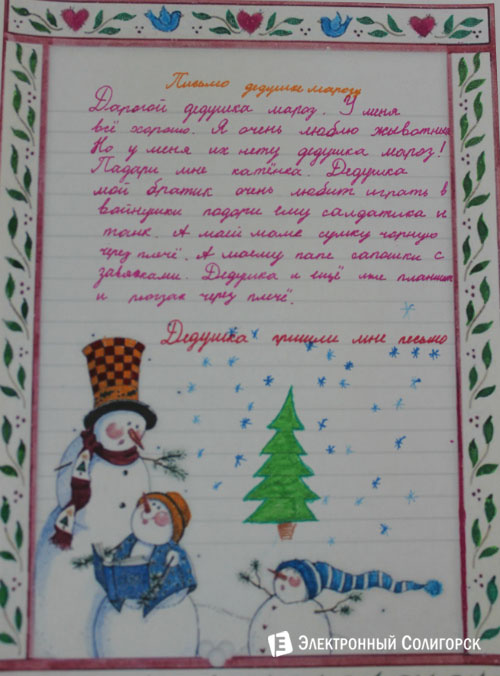 Письмо дедушке марозу
Дарогой дедушка мароз. У меня
всё хорошо. Я очень люблю животных
Но у меня их нету дедушка мароз!
Падари мне катёнка. Дедушка
мой братик очень любит играть в
вайнушки падари ему салдатика и
танк. А маей маме сумку чорную
через плечё. А моему папе сапошки с
завясками. Дедушка и ещё мне планшет
и рюгзак через плечё.
Дедушка пришли мне песьмо
Электронный Солигорск